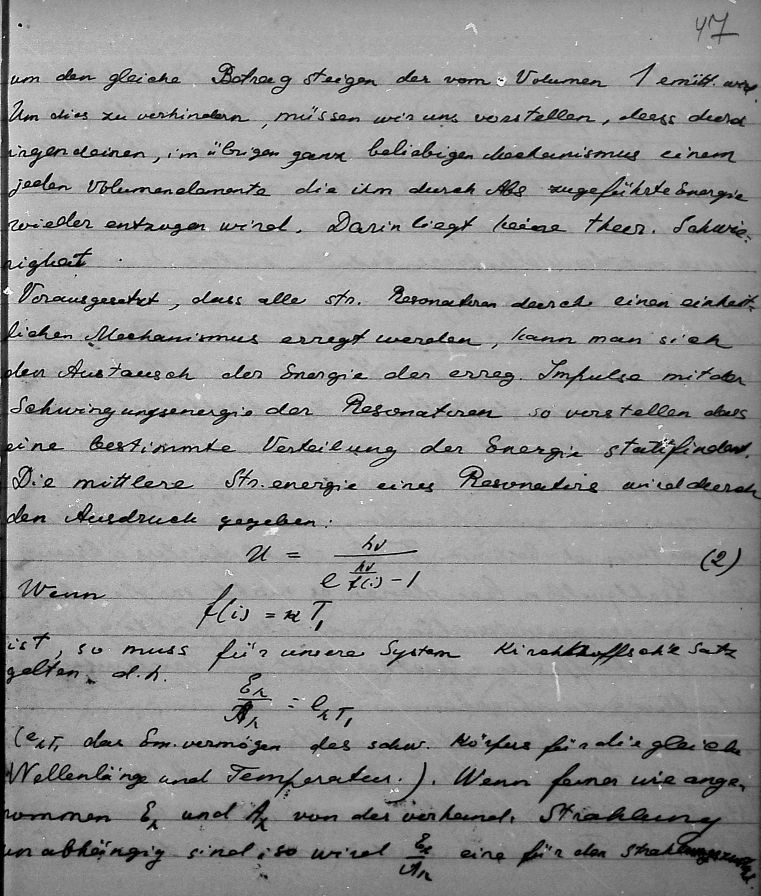 47
um den gleiche Betrag steigen der vom Volumen 1 emitt. wird.
Um dies zu verhindern, müssen wir uns vorstellen, dass durch
irgendeinen, im übrigen ganz beliebigen Mechanismus einem
jeden Volumenelemente die ihm durch Abs zugeführte Energie
wieder entzogen wird. Darin liegt keine theor. Schwie-
rigkeit.
Vorausgesetzt, dass alle str. Resonatoren durch einen einheit-
lichen Mechanismus erregt werden, kann man sich
den Austausch der Energie der erreg. Impulse mit der
Schwingungsenergie der Resonatoren so vorstellen dass
eine bestimmte Verteilung der Energie stattfindet.
Die mittlere Str. energie eines Resonators wird durch
den Ausdruck gegeben:
U = hν / (e^(hν/f(i)) − 1) (2)
Wenn
f(i) = κ T₁
ist, so muss für unsere System Kirchhoffsche Satz
gelten, d.h.
E_λ / A_λ = e_λT₁
(e_λT₁ das Em.vermögen des schw. Körpers für die gleiche
Wellenlänge und Temperatur.). Wenn ferner wie ange-
nommen E_λ und A_λ von der vorhand. Strahlung
unabhängig sind, so wird E_λ / A_λ eine für den